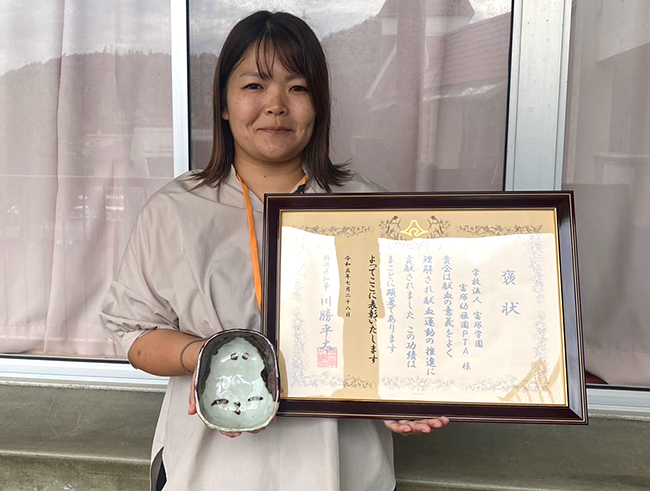 褒状
学校法人 富塚学園
富塚幼稚園PTA 様
貴会は献血の意義をよく
理解され献血運動の推進に
貢献されました この功績は
まことに顕著であります
よってここに表彰いたします
令和五年七月二十八日
静岡県知事 川勝平太